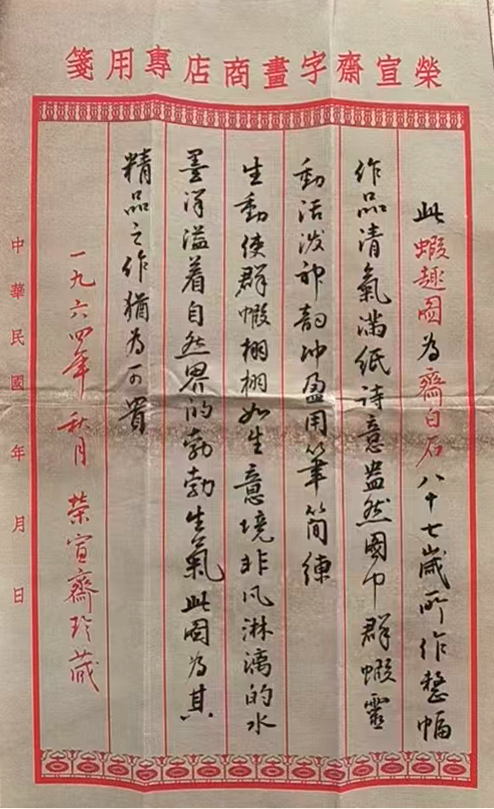 榮宣齋字畫商店專用箋
此蝦趣圖為齋白石八十七歲所作整幅
作品清氣滿紙詩意盎然圖巾群蝦靈
動活潑神韵冲盈用筆简練
生動使群蝦栩栩如生意境非凡淋漓的水
墨洋溢着自然界的勃勃生氣此圖為其
精品之作猶為可貴
一九六四年秋月 荣宣齋珍藏
中華民國 年 月 日